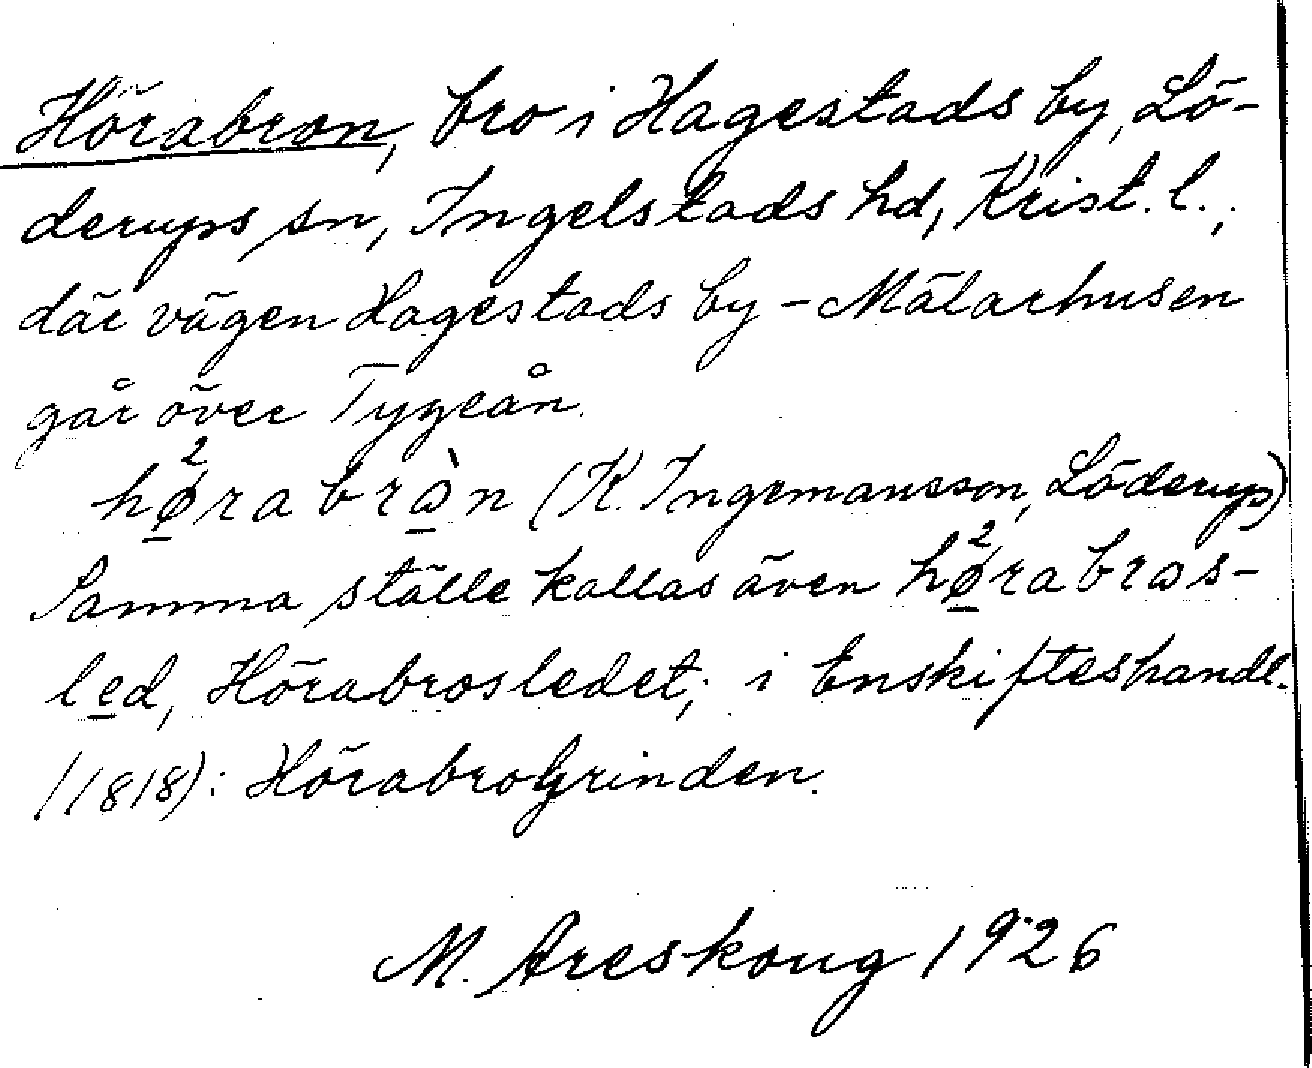 Hörabron, bro i Hagestads by, Lö-
derups sn, Ingelstads hd, Krist. l.,
där vägen Hagestads by - Mälarhusen
går över Tygeån.
hø̱²rabrɑ̱̀n (K. Ingemansson, Löderup)
Samma ställe kallas även hø̱²rabrɷs-
le̱d, Hörabrosledet; i Enskifteshandl.
(1818): HörabroGrinden.
M. Areskoug 1926